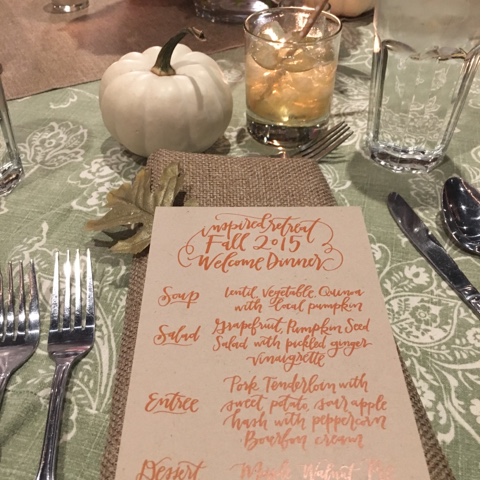 inspired retreat
Fall 2015
Welcome Dinner
Soup
Lentil, Vegetable, Quinoa
with local pumpkin
Salad
Grapefruit, Pumpkin Seed
Salad with pickled ginger
vinaigrette
Entree
Pork Tenderloin with
sweet potato, sour apple
hash with peppercorn
Bourbon cream
Dessert
Maple Walnut Pie